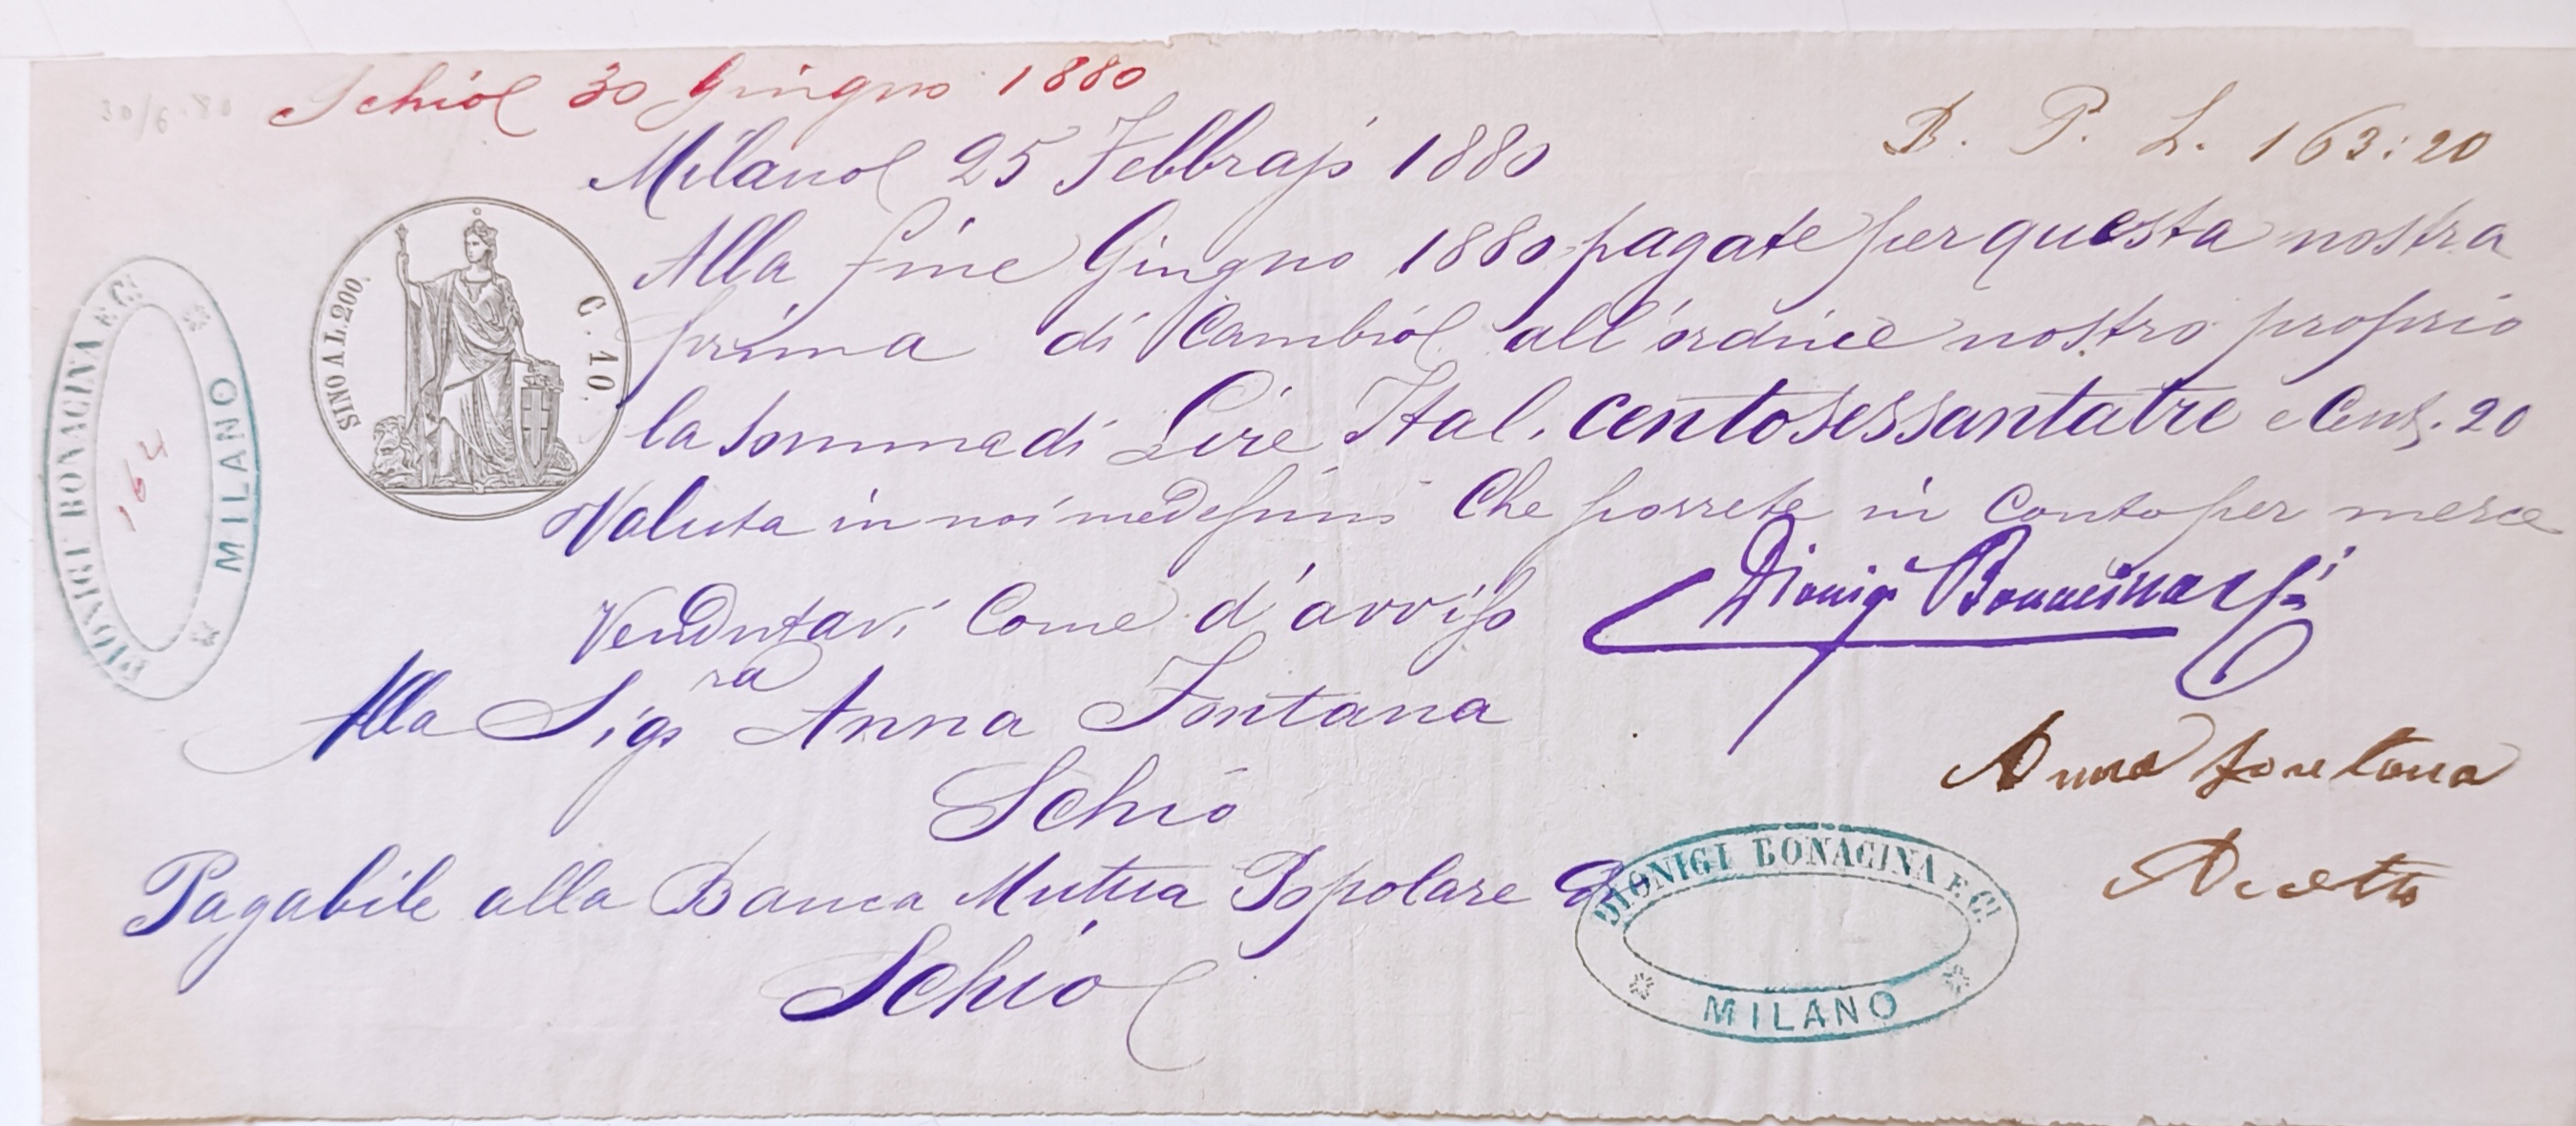 30/6.80
Schio 30 Giugno 1880
Milano 25 Febbrajo 1880
B. P. L. 163:20
SINO A L.200.
C. 10.
Alla fine Giugno 1880 pagate per questa nostra
prima di Cambio all'ordine nostro proprio
la somma di Lire Ital. centosessantatre e Cent. 20
Valuta in noi medesimi Che porrete in Conto per merce
Vendutavi Come d'avviso
Dionigi Bonacina e Ci
Alla Sigra Anna Fontana
Schio
Pagabile alla Banca Mutua Popolare di
Schio
Anna Fontana
Acetto
DIONIGI BONACINA E C.
MILANO
DIONIGI BONACINA E C.
MILANO